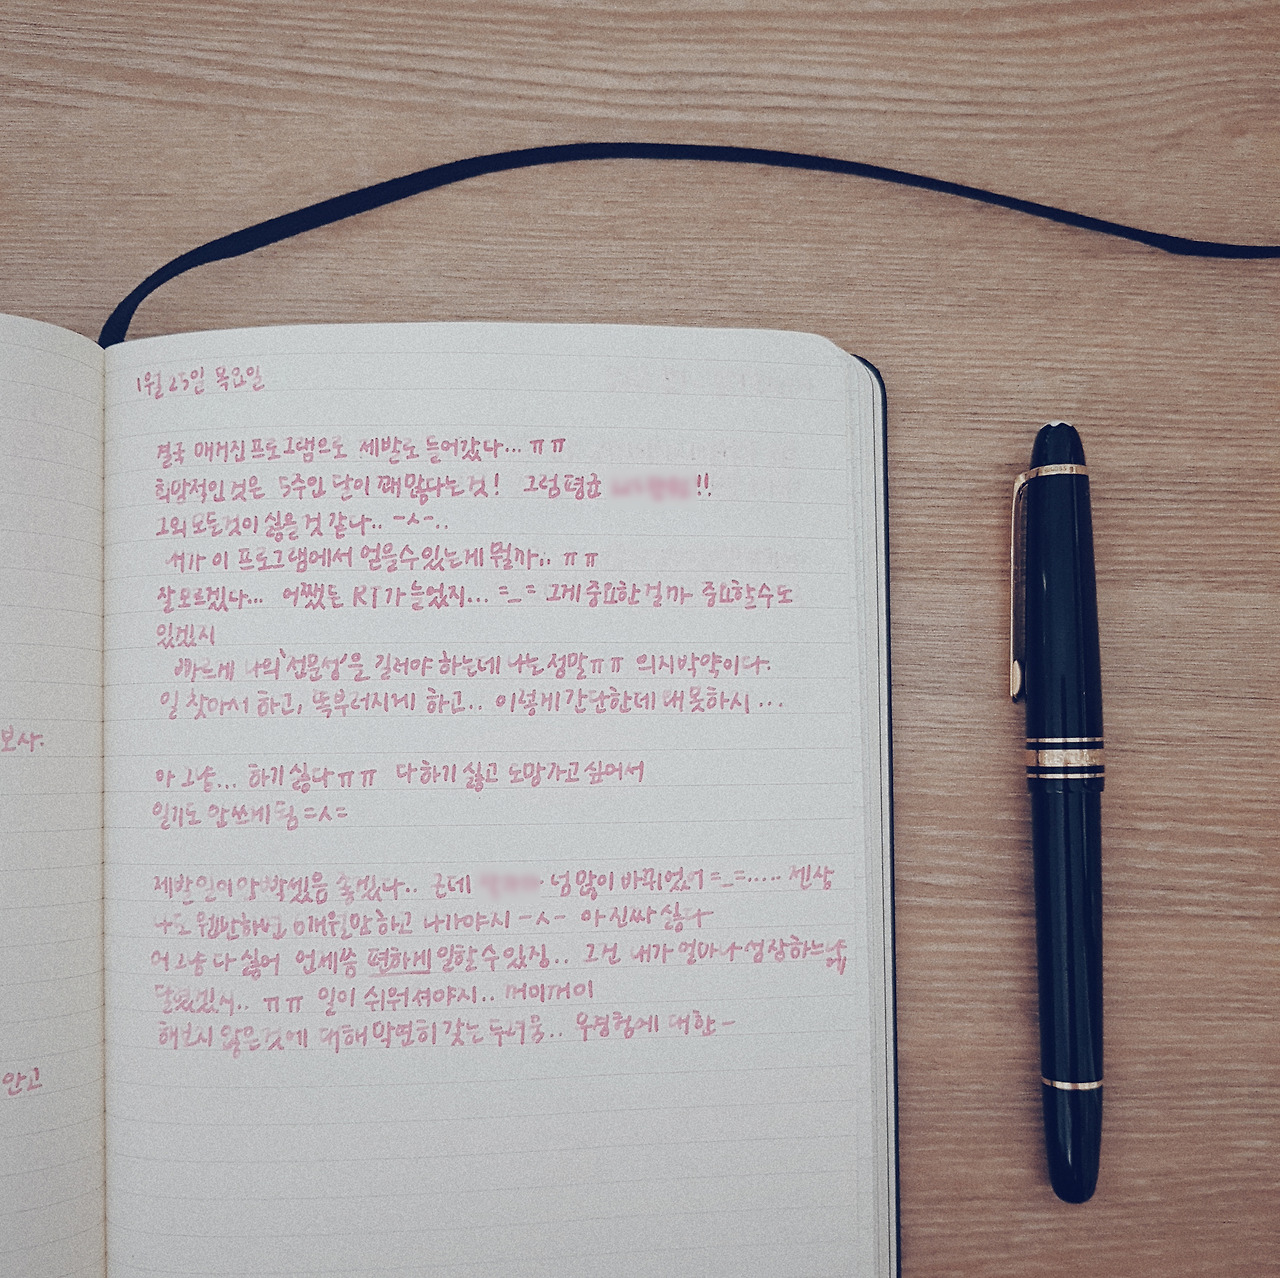 보사.
안고
1월 25일 목요일
결국 매거진 프로그램으로 제발로 들어갔다... ㅠㅠ
희망적인 것은 5주인 달이 꽤 많다는 것! 그럼 평균 !!
그외 모든것이 싫을 것 같다.. -ㅅ-..
내가 이 프로그램에서 얻을수 있는게 뭘까.. ㅠㅠ
잘 모르겠다... 어쨌든 RT가 늘었지... =_= 그게 중요한걸까 중요할수도
있겠지
빠르게 나의 '전문성'을 길러야 하는데 나는 정말ㅠㅠ 의지박약이다.
일 찾아서 하고, 똑부러지게 하고.. 이렇게 간단한데 왜 못하지...
아 그냥... 하기 싫다ㅠㅠ 다 하기 싫고 도망가고 싶어서
일기도 안쓰게 됨 =ㅅ=
제발 일이 안 빡셌음 좋겠다.. 근데 넘 많이 바뀌었어 =_=..... 젠장
나도 웬만하면 6개월만 하고 나가야지 -ㅅ- 아 진짜 싫다
어 그냥 다 싫어 언제쯤 편하게 일할 수 있징.. 그건 내가 얼마나 성장하느냐에
달렸겠지.. ㅠㅠ 일이 쉬워져야지.. 꺼이꺼이
해보지 않은 것에 대해 막연히 갖는 두려움.. 무경험에 대한-